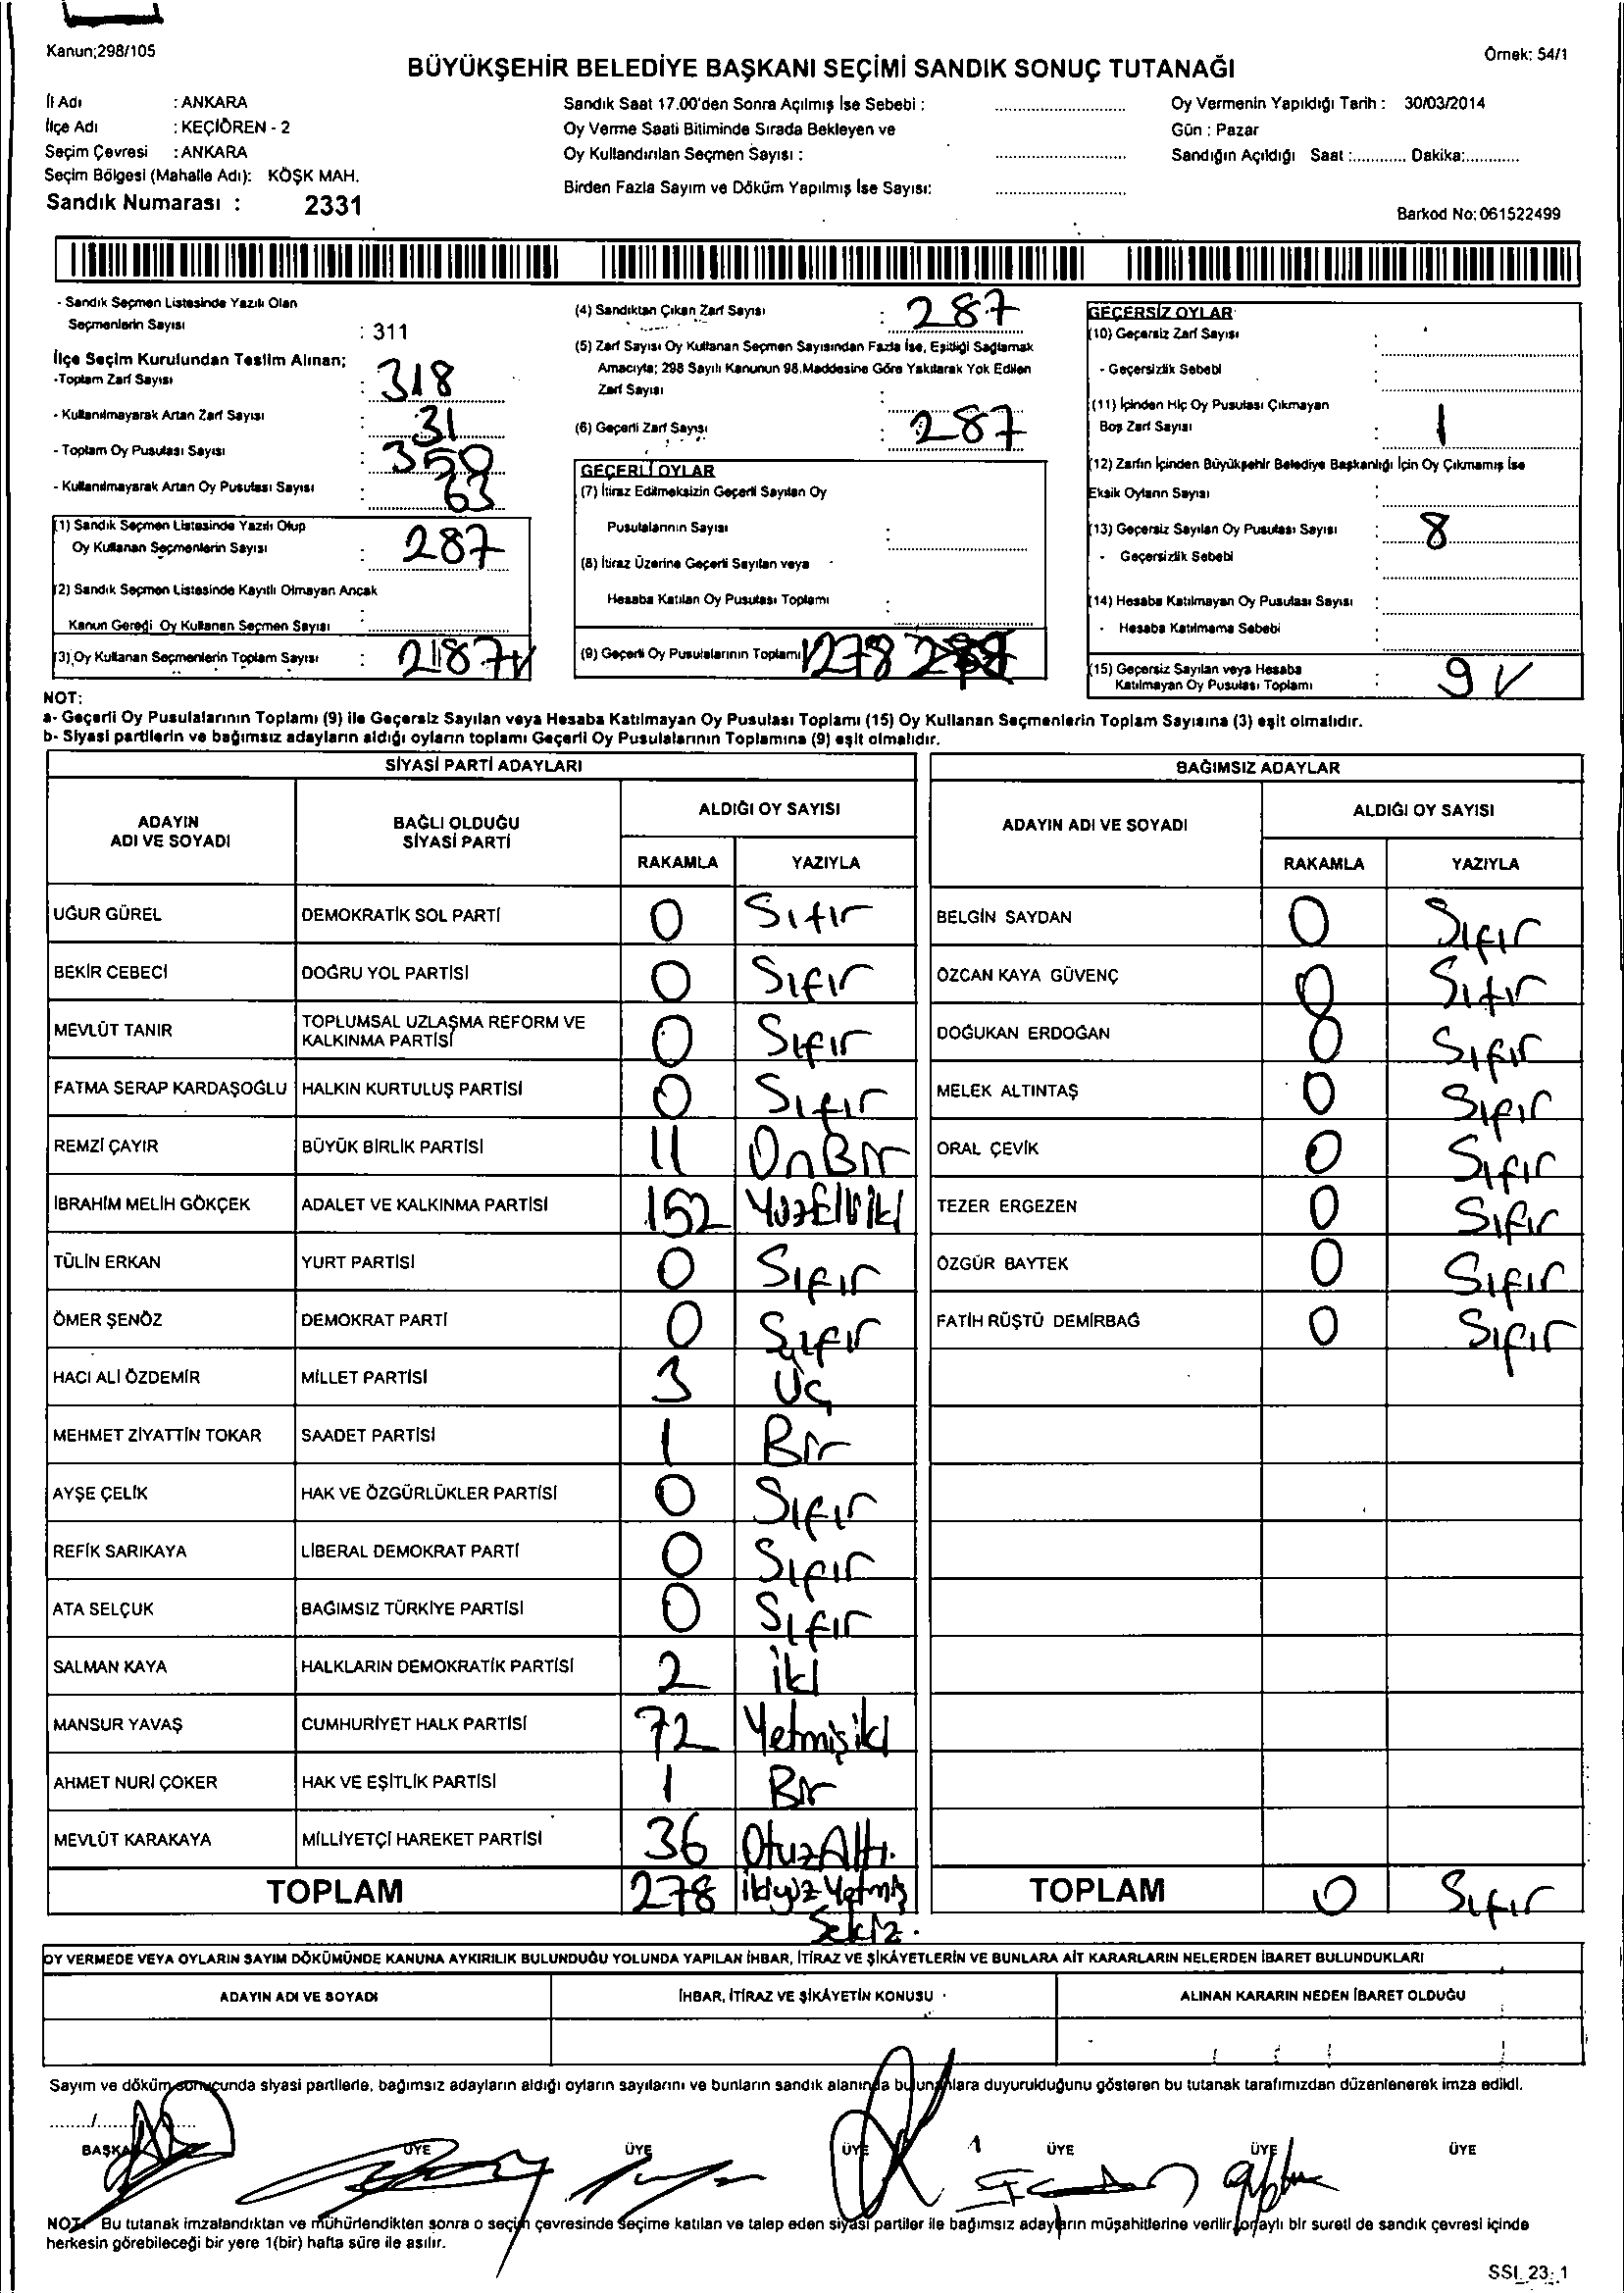 Kanun;298/105
Örnek: 54/1
BÜYÜKŞEHİR BELEDİYE BAŞKANI SEÇİMİ SANDIK SONUÇ TUTANAĞI
İl Adı : ANKARA
İlçe Adı : KEÇİÖREN - 2
Seçim Çevresi : ANKARA
Seçim Bölgesi (Mahalle Adı): KÖŞK MAH.
Sandık Numarası : 2331
Sandık Saat 17.00'den Sonra Açılmış İse Sebebi :
Oy Verme Saati Bitiminde Sırada Bekleyen ve
Oy Kullandırılan Seçmen Sayısı :
Birden Fazla Sayım ve Döküm Yapılmış İse Sayısı:
Oy Vermenin Yapıldığı Tarih : 30/03/2014
Gün : Pazar
Sandığın Açıldığı Saat :............ Dakika:............
Barkod No: 061522499
- Sandık Seçmen Listesinde Yazılı Olan
Seçmenlerin Sayısı : 311
İlçe Seçim Kurulundan Teslim Alınan;
-Toplam Zarf Sayısı : 318
- Kullanılmayarak Artan Zarf Sayısı : 31
- Toplam Oy Pusulası Sayısı : 350
- Kullanılmayarak Artan Oy Pusulası Sayısı : 63
(1) Sandık Seçmen Listesinde Yazılı Olup
Oy Kullanan Seçmenlerin Sayısı : 287
(2) Sandık Seçmen Listesinde Kayıtlı Olmayan Ancak
Kanun Gereği Oy Kullanan Seçmen Sayısı :
(3) Oy Kullanan Seçmenlerin Toplam Sayısı : 287
(4) Sandıktan Çıkan Zarf Sayısı : 287
(5) Zarf Sayısı Oy Kullanan Seçmen Sayısından Fazla İse, Eşitliği Sağlamak
Amacıyla; 298 Sayılı Kanunun 98.Maddesine Göre Yakılarak Yok Edilen
Zarf Sayısı :
(6) Geçerli Zarf Sayısı : 287
GEÇERLİ OYLAR
(7) İtiraz Edilmeksizin Geçerli Sayılan Oy
Pusulalarının Sayısı :
(8) İtiraz Üzerine Geçerli Sayılan veya
Hesaba Katılan Oy Pusulası Toplamı :
(9) Geçerli Oy Pusulalarının Toplamı 278
GEÇERSİZ OYLAR
(10) Geçersiz Zarf Sayısı :
- Geçersizlik Sebebi :
(11) İçinden Hiç Oy Pusulası Çıkmayan
Boş Zarf Sayısı : 1
(12) Zarfın İçinden Büyükşehir Belediye Başkanlığı İçin Oy Çıkmamış İse
Eksik Oyların Sayısı :
(13) Geçersiz Sayılan Oy Pusulası Sayısı : 8
- Geçersizlik Sebebi :
(14) Hesaba Katılmayan Oy Pusulası Sayısı :
- Hesaba Katılmama Sebebi :
(15) Geçersiz Sayılan veya Hesaba
Katılmayan Oy Pusulası Toplamı : 9
NOT:
a- Geçerli Oy Pusulalarının Toplamı (9) ile Geçersiz Sayılan veya Hesaba Katılmayan Oy Pusulası Toplamı (15) Oy Kullanan Seçmenlerin Toplam Sayısına (3) eşit olmalıdır.
b- Siyasi partilerin ve bağımsız adayların aldığı oyların toplamı Geçerli Oy Pusulalarının Toplamına (9) eşit olmalıdır.
SİYASİ PARTİ ADAYLARI
ADAYIN ADI VE SOYADI
BAĞLI OLDUĞU SİYASİ PARTİ
ALDIĞI OY SAYISI
RAKAMLA YAZIYLA
UĞUR GÜREL DEMOKRATİK SOL PARTİ 0 Sıfır
BEKİR CEBECİ DOĞRU YOL PARTİSİ 0 Sıfır
MEVLÜT TANIR TOPLUMSAL UZLAŞMA REFORM VE KALKINMA PARTİSİ 0 Sıfır
FATMA SERAP KARDAŞOĞLU HALKIN KURTULUŞ PARTİSİ 0 Sıfır
REMZİ ÇAYIR BÜYÜK BİRLİK PARTİSİ 11 OnBir
İBRAHİM MELİH GÖKÇEK ADALET VE KALKINMA PARTİSİ 152 YüzElliiki
TÜLİN ERKAN YURT PARTİSİ 0 Sıfır
ÖMER ŞENÖZ DEMOKRAT PARTİ 0 Sıfır
HACI ALİ ÖZDEMİR MİLLET PARTİSİ 3 Üç
MEHMET ZİYATTİN TOKAR SAADET PARTİSİ 1 Bir
AYŞE ÇELİK HAK VE ÖZGÜRLÜKLER PARTİSİ 0 Sıfır
REFİK SARIKAYA LİBERAL DEMOKRAT PARTİ 0 Sıfır
ATA SELÇUK BAĞIMSIZ TÜRKİYE PARTİSİ 0 Sıfır
SALMAN KAYA HALKLARIN DEMOKRATİK PARTİSİ 2 iki
MANSUR YAVAŞ CUMHURİYET HALK PARTİSİ 72 Yetmişiki
AHMET NURİ ÇOKER HAK VE EŞİTLİK PARTİSİ 1 Bir
MEVLÜT KARAKAYA MİLLİYETÇİ HAREKET PARTİSİ 36 OtuzAltı.
TOPLAM 278 ikiyüz Yetmiş Sekiz.
BAĞIMSIZ ADAYLAR
ADAYIN ADI VE SOYADI
ALDIĞI OY SAYISI
RAKAMLA YAZIYLA
BELGİN SAYDAN 0 Sıfır
ÖZCAN KAYA GÜVENÇ 0 Sıfır
DOĞUKAN ERDOĞAN 0 Sıfır
MELEK ALTINTAŞ 0 Sıfır
ORAL ÇEVİK 0 Sıfır
TEZER ERGEZEN 0 Sıfır
ÖZGÜR BAYTEK 0 Sıfır
FATİH RÜŞTÜ DEMİRBAĞ 0 Sıfır
TOPLAM 0 Sıfır
OY VERMEDE VEYA OYLARIN SAYIM DÖKÜMÜNDE KANUNA AYKIRILIK BULUNDUĞU YOLUNDA YAPILAN İHBAR, İTİRAZ VE ŞİKÂYETLERİN VE BUNLARA AİT KARARLARIN NELERDEN İBARET BULUNDUKLARI
ADAYIN ADI VE SOYADI
İHBAR, İTİRAZ VE ŞİKÂYETİN KONUSU
ALINAN KARARIN NEDEN İBARET OLDUĞU
Sayım ve döküm sonucunda siyasi partilerle, bağımsız adayların aldığı oyların sayılarını ve bunların sandık alanında bulunanlara duyurulduğunu gösteren bu tutanak tarafımızdan düzenlenerek imza edildi.
BAŞKAN ÜYE ÜYE ÜYE ÜYE ÜYE ÜYE
NOT: Bu tutanak imzalandıktan ve mühürlendikten sonra o seçim çevresinde seçime katılan ve talep eden siyasi partiler ile bağımsız adayların müşahitlerine verilir, onaylı bir sureti de sandık çevresi içinde
herkesin görebileceği bir yere 1(bir) hafta süre ile asılır.
SSI_23:.1